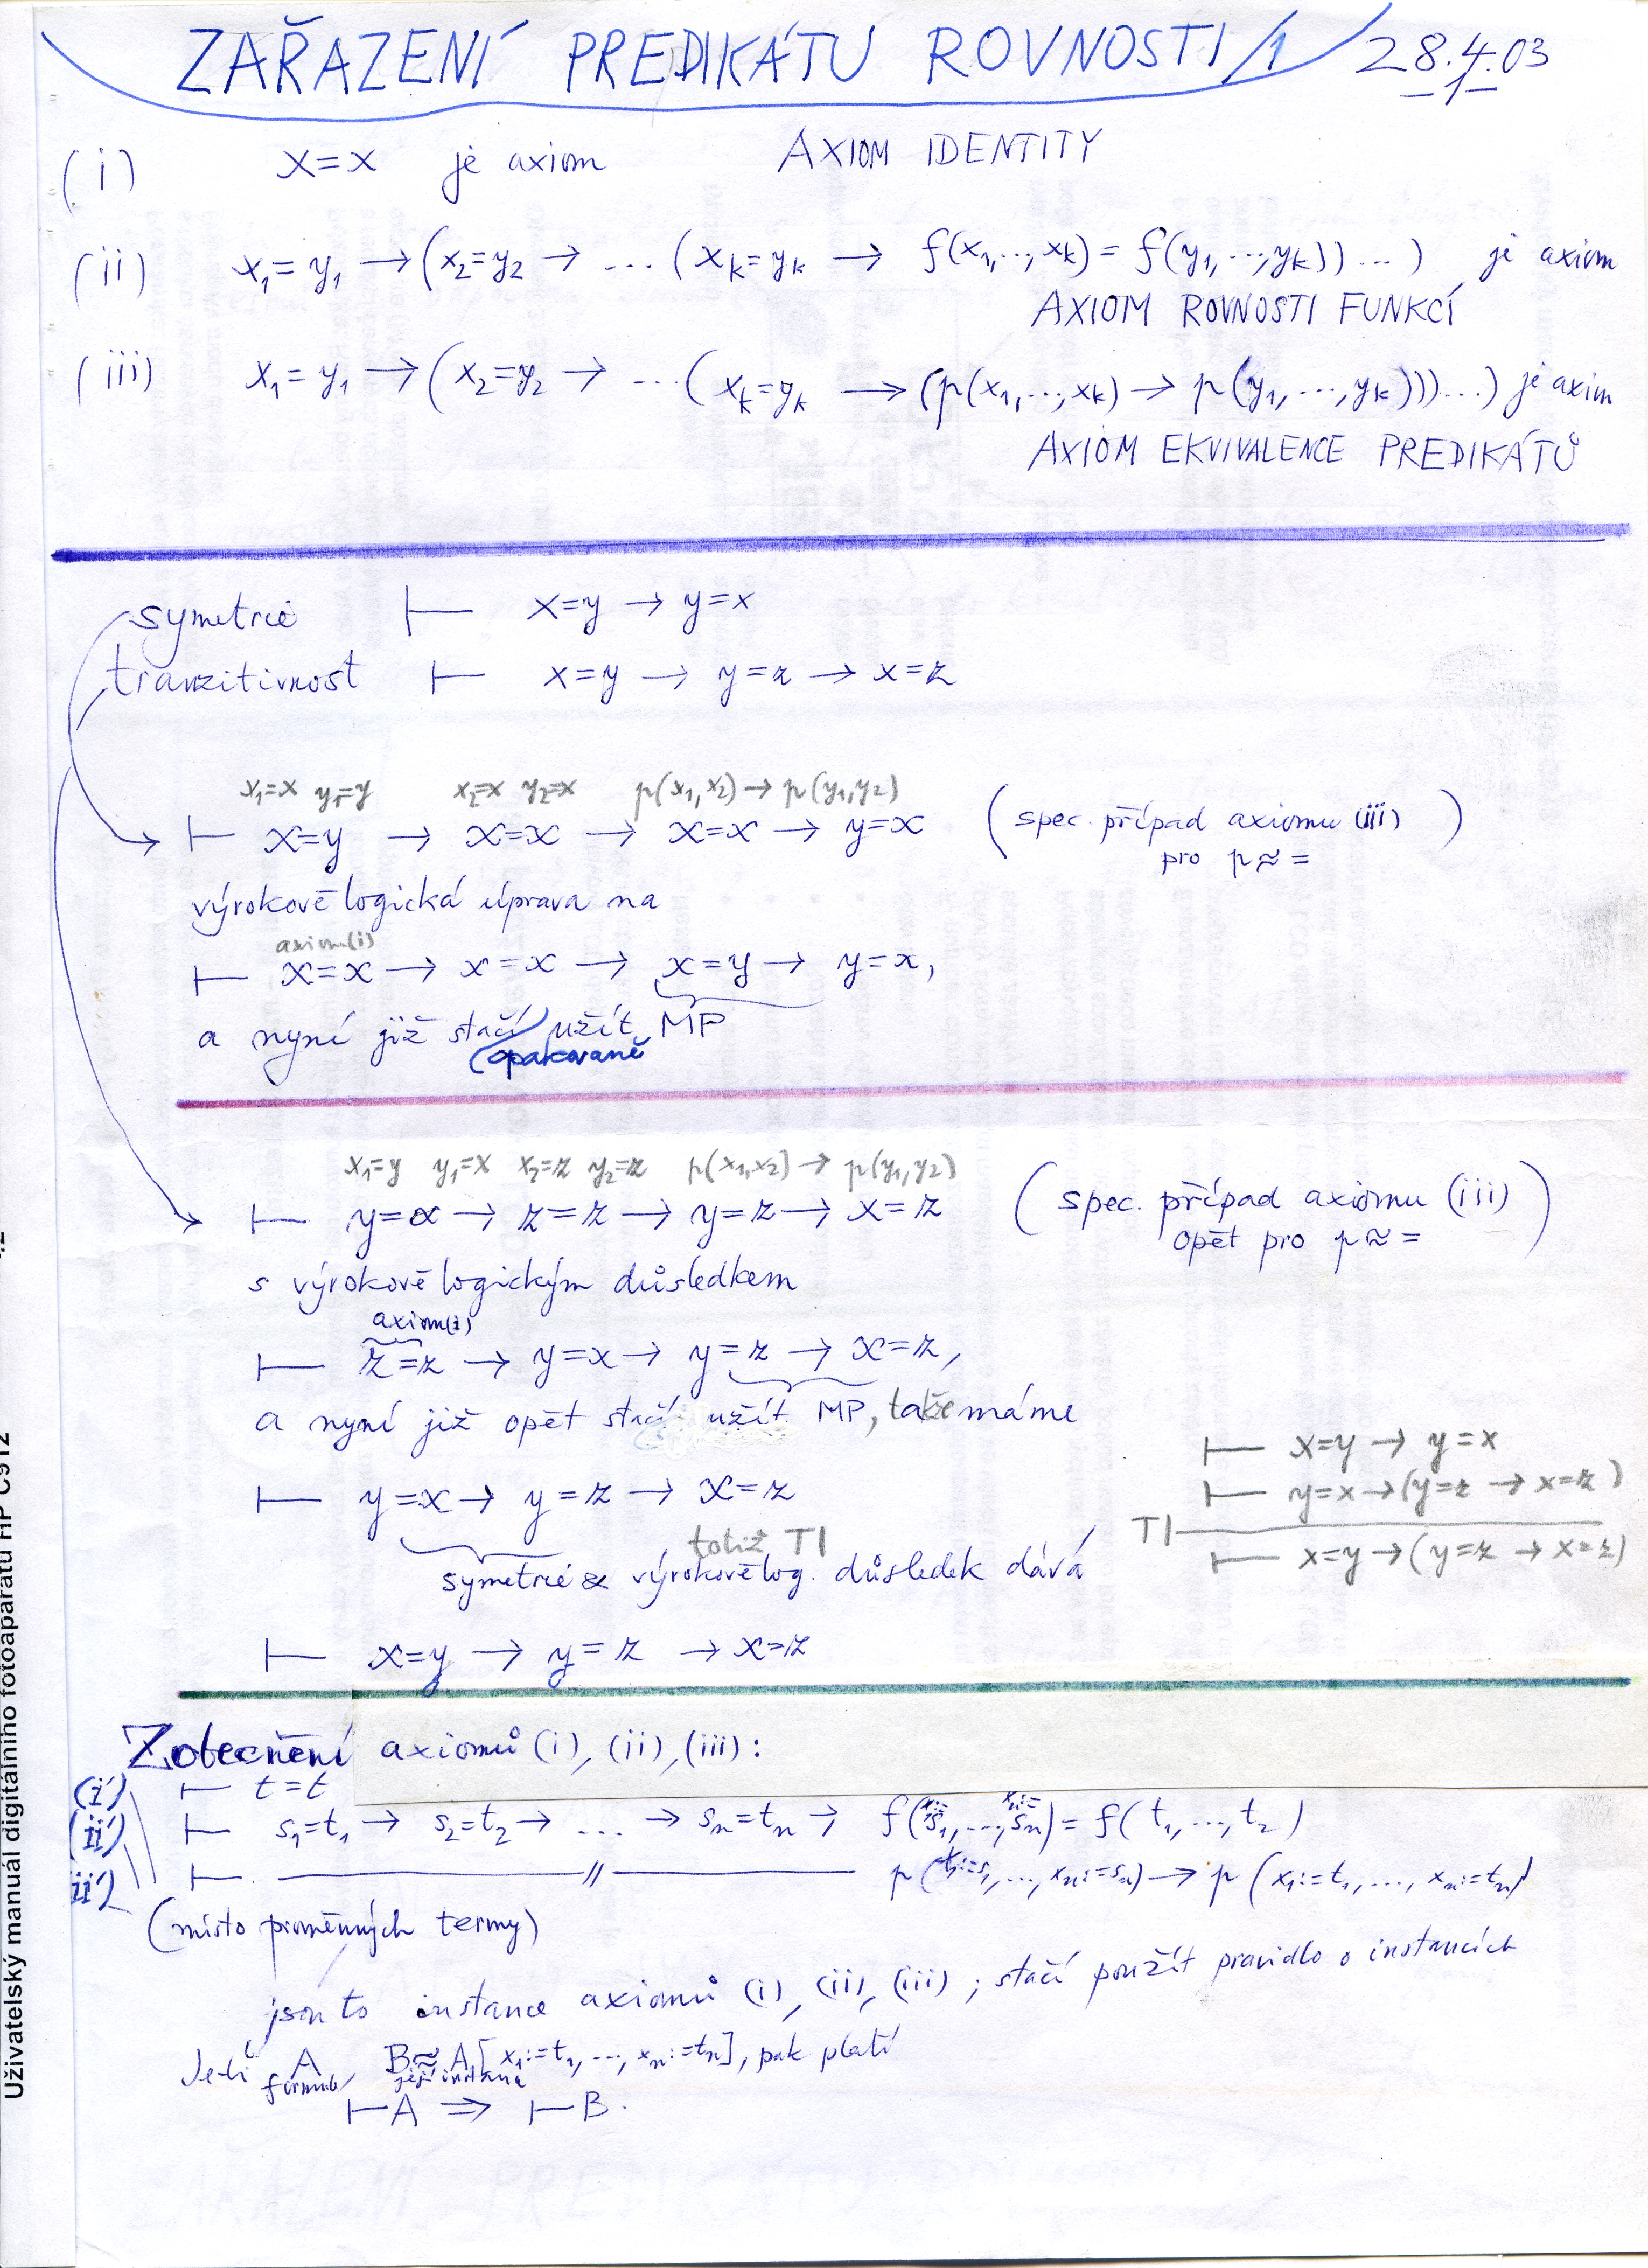 ZAŘAZENÍ PREDIKÁTU ROVNOSTI/1 28.4.03
-1-
(i) x=x je axiom AXIOM IDENTITY
(ii) x₁=y₁ → (x₂=y₂ → ... (xₖ=yₖ → f(x₁,..,xₖ) = f(y₁,..,yₖ))...) je axiom
AXIOM ROVNOSTI FUNKCÍ
(iii) x₁=y₁ → (x₂=y₂ → ...(xₖ=yₖ → (p(x₁,..,xₖ) → p(y₁,...,yₖ)))...) je axiom
AXIOM EKVIVALENCE PREDIKÁTŮ
symetrie ⊢ x=y → y=x
tranzitivnost ⊢ x=y → y=z → x=z
x₁=x y₁=y x₂=x y₂=x p(x₁,x₂) → p(y₁,y₂)
⊢ x=y → x=x → x=x → y=x (spec. případ axiomu (iii)
pro p≈=)
výrokově logická úprava na
axiom(i)
⊢ x=x → x=x → x=y → y=x,
a nyní již stačí užít MP
(opakovaně
x₁=y y₁=x x₂=z y₂=z p(x₁,x₂) → p(y₁,y₂)
⊢ y=x → z=z → y=z → x=z (spec. případ axiomu (iii)
opět pro p≈=)
s výrokově logickým důsledkem
axiom(i)
⊢ z=z → y=x → y=z → x=z,
a nyní již opět stačí užít MP, takže máme
⊢ x=y → y=x
⊢ y=x → (y=z → x=z)
⊢ y=x → y=z → x=z
TI ⊢ x=y → (y=z → x=z)
totiž TI
symetrie & výrokově log. důsledek dává
⊢ x=y → y=z → x=z
Zobecnění axiomů (i), (ii), (iii):
(i') ⊢ t=t
(ii') ⊢ s₁=t₁ → s₂=t₂ → ... → sₙ=tₙ → f(x₁:=s₁,...,xₙ:=sₙ) = f(t₁,...,t₂)
iii') ⊢ —//— p(x₁:=s₁,...,xₙ:=sₙ) → p(x₁:=t₁,...,xₙ:=tₙ)
(místo proměnných termy)
jsou to instance axiomů (i), (ii), (iii); stačí použít pravidlo o instancích
Je-li A formule, B≈A[x₁:=t₁,...,xₙ:=tₙ], pak platí
její instance
⊢A ⇒ ⊢B.
Uživatelský manuál digitálního fotoaparátu HP C912